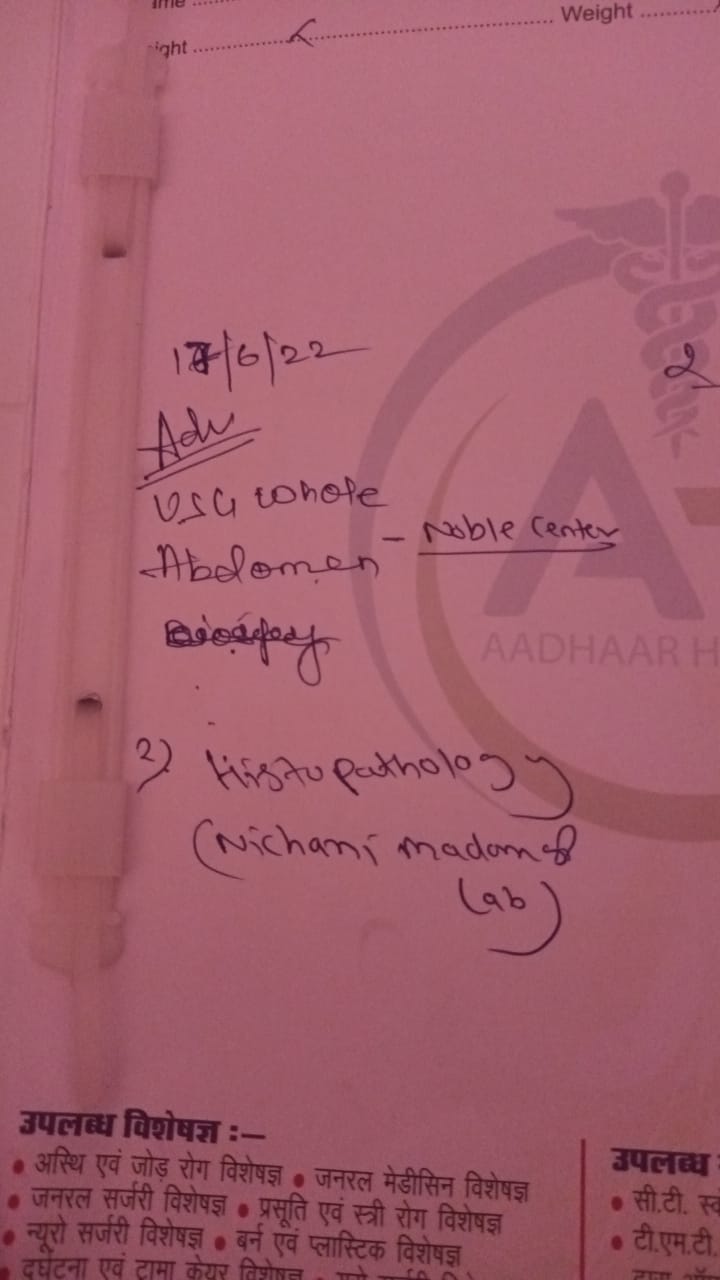 Weight ............
ight ............
17/6/22
Adv
USG whole
Abdomen - Noble Center
2) Histopathology
(Nichani madam
Lab)
AADHAAR H
उपलब्ध विशेषज्ञ :–
• अस्थि एवं जोड़ रोग विशेषज्ञ • जनरल मेडीसिन विशेषज्ञ
• जनरल सर्जरी विशेषज्ञ • प्रसूति एवं स्त्री रोग विशेषज्ञ
• न्यूरो सर्जरी विशेषज्ञ • बर्न एवं प्लास्टिक विशेषज्ञ
• दुर्घटना एवं ट्रामा केयर विशेषज्ञ
उपलब्ध
• सी.टी.
• टी.एम.टी.